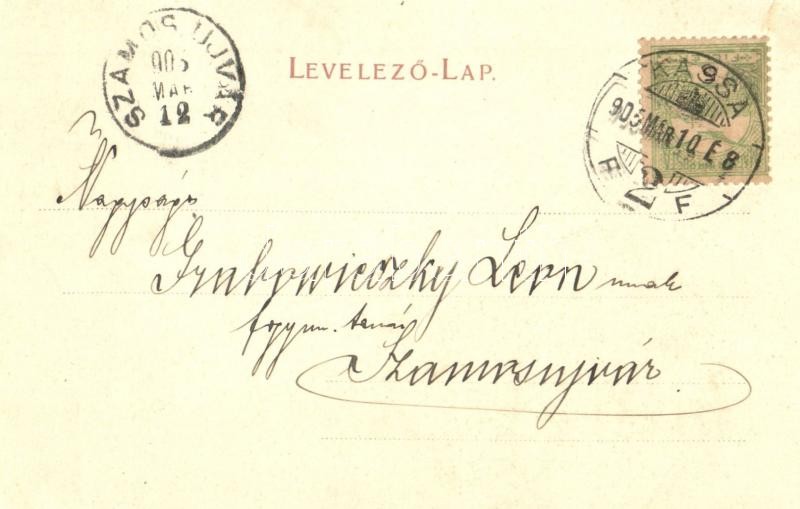 SZAMOS UJVÁR
905
MAR
12
LEVELEZŐ-LAP.
KASSA
905 MÁR 10 E 8
2
F
Nagyságo
Grabowieczky Leon
Szamosujvár